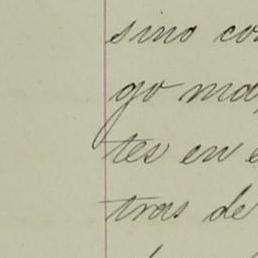 sino con
go ma
tes en e
tras de